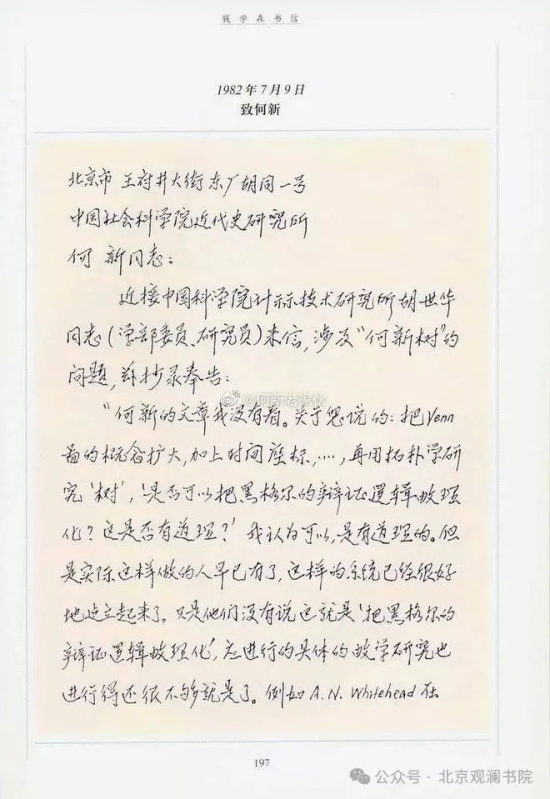 钱学森书信
1982年7月9日
致何新
北京市 王府井大街东厂胡同一号
中国社会科学院近代史研究所
何 新同志：
近接中国科学院计算技术研究所胡世华
同志(学部委员、研究员)来信,涉及“何新树”的
问题,兹抄录奉告：
@何新老家伙
“何新的文章我没有看。关于您说的：把Venn
图的概念扩大,加上时间座标,……,再用拓朴学研
究‘树’,‘是否可以把黑格尔的辩证逻辑数理
化？这是否有道理？’我认为可以,是有道理的。但
是实际这样做的人早已有了,这样的系统已经很好
地建立起来了。只是他们没有说这就是‘把黑格尔的
辩证逻辑数理化’,应进行的具体的数学研究也
进行得还很不够就是了。例如A.N. Whitehead在
197
公众号·北京观澜书院